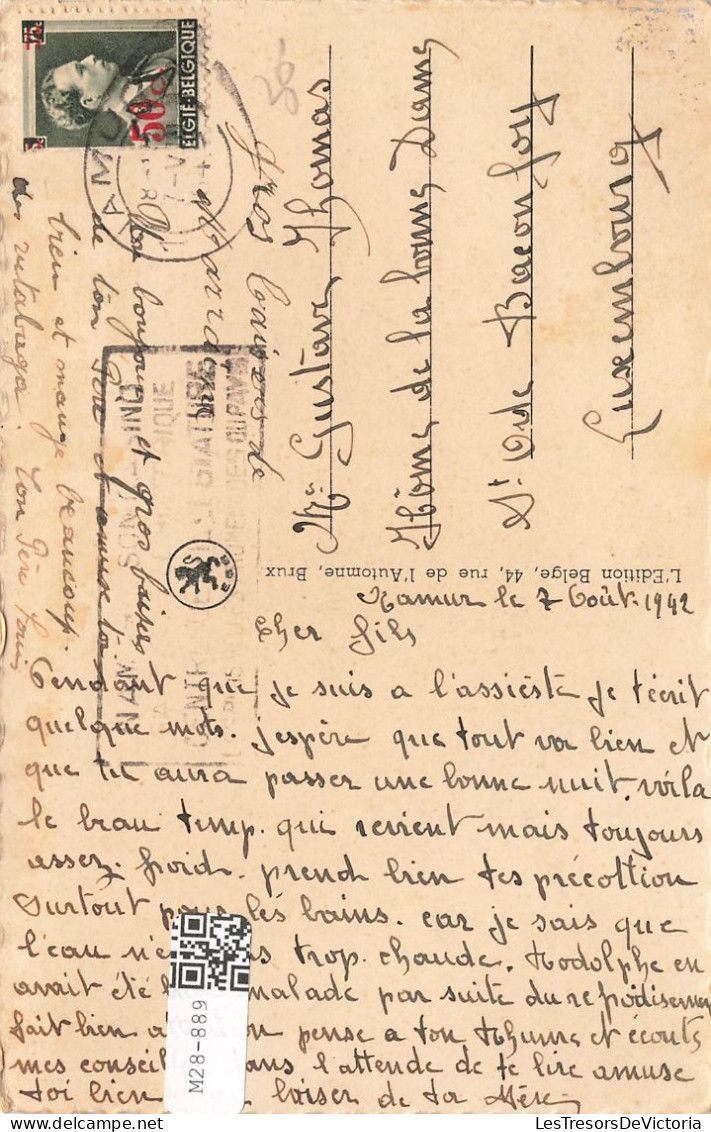 Namur le 7 Août. 1942
Cher fils
Pendant que je suis a l'assieste je t'écrit
quelque mots. j'espère que tout va bien et
que tu aura passer une bonne nuit. voila
le beau temp. qui revient mais toujours
assez. froid. prend bien tes précottion
surtout pour lés bains. car je sais que
l'eau trop. chaude. Rodolphe en
avait été malade par suite du refroidisemen
fait bien pense a ton Rhume et écoute
mes conseil dans l'attende de te lire amuse
toi bien baiser de ta Mère
Mr Gustave Thomas
Hôme de la bonne Dame
St Ode Baconfoy
Luxembourg
gros baisers de
Marraine
Un bonjour et gros baisers
de ton Père et amuse toi
bien et mange beaucoup.
des rutabaga. Ton Père Louis
L'Edition Belge, 44, rue de l'Automne, Brux
BELGIË-BELGIQUE
50 c
75c
NAMUR
M28-889
LesTresorsDeVictoria.com